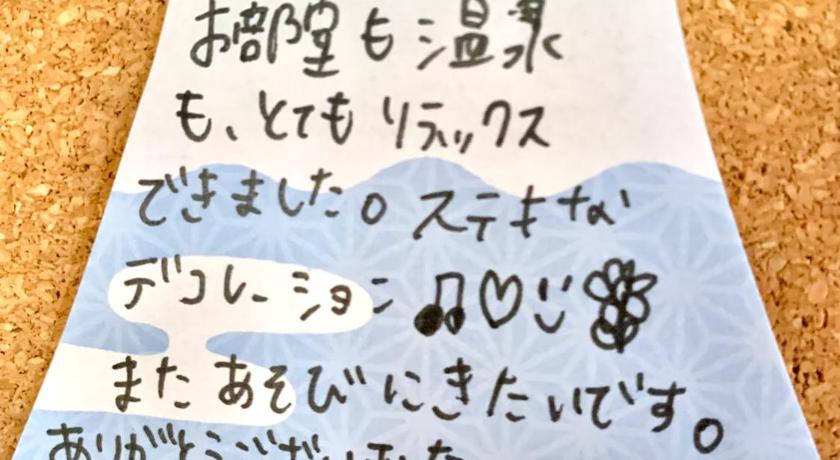 お部屋も温泉
も、とてもリラックス
できました。ステキな
デコレーション♫♡
またあそびにきたいです。
ありがとうございました